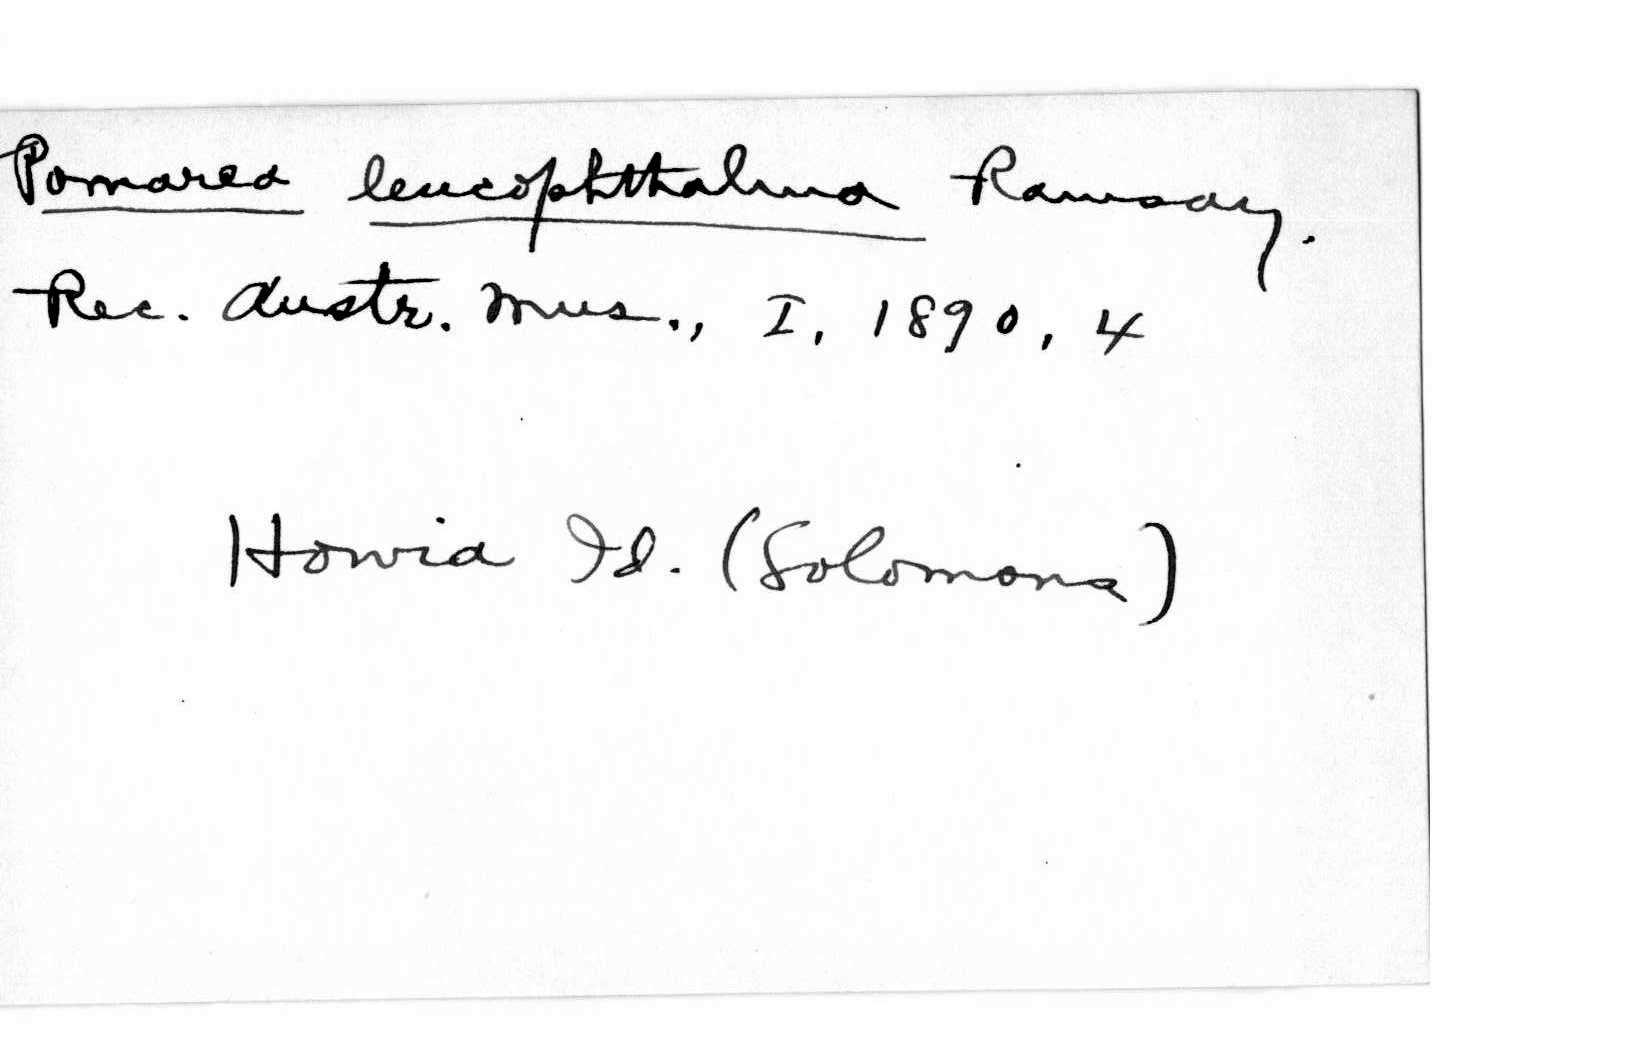 Pomarea leucophthalma Ramsay.
Rec. Austr. Mus., I, 1890, 4
Howia Id. (Solomons)